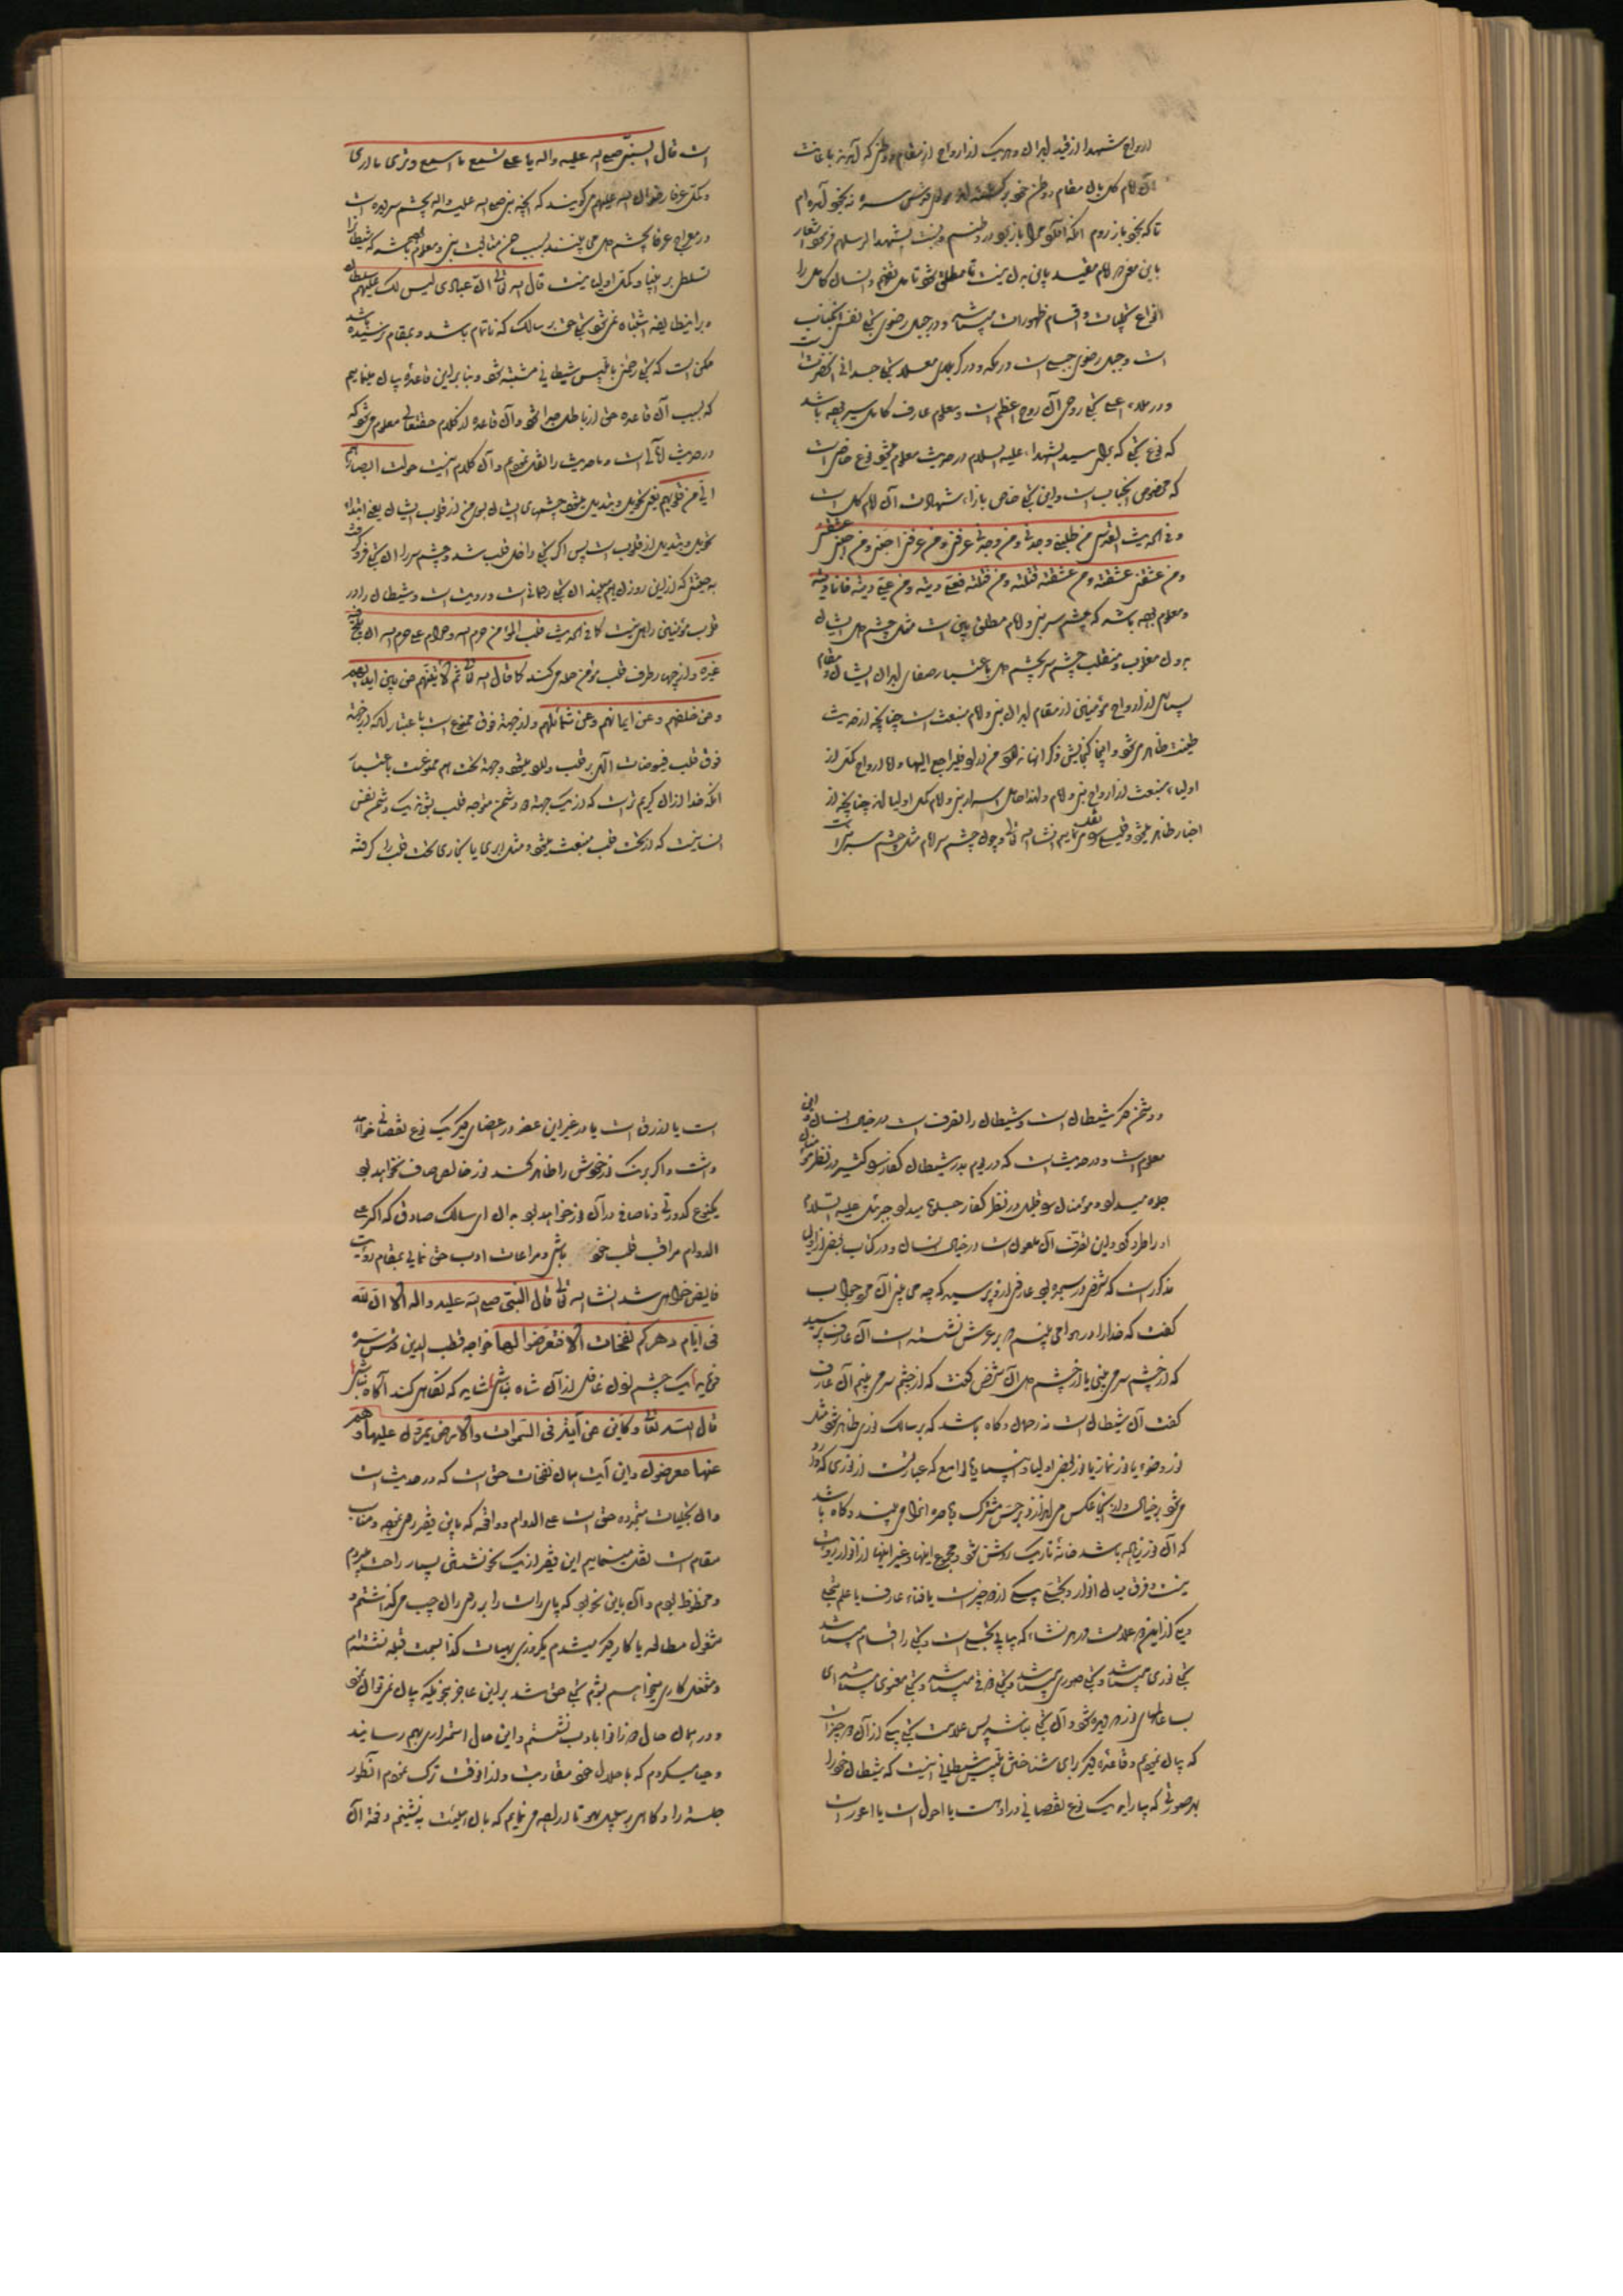 ارواح شهدا از قید ابدان و هر یک از ارواح از مقام و وطن که آمدند باعانت
آن امام کل بان مقام و وطن خود برگشتند مولوی قدس سره نه بخود آمده‌ام
تا که بخود باز روم آنکه آورد مرا باز برد در وطنم و نسبت شهدا
باین معنی امام مقید باین بدن نیست تا مطلق شود و انسان کامل را
انواع تجلیات و اقسام ظهورات میباشد و در جبل رضوی تجلی نفس آنجناب
است و جبل رضوی جبلی است در مکه و در کربلای معلا تجلی جسدانی آنحضرت
و در ملاء اعلی تجلی روحی آن روح اعظم است و معلوم عارف کامل سیر بوده باشد
که نوع تجلی که برای سید الشهداء علیه السلام در حدیث معلوم میشود نوع خاصی است
که مخصوص آنجناب است و این تجلی خاص بازاء شهادت آن امام کل است
و فی الحدیث القدسی من طلبنی وجدنی و من وجدنی عرفنی و من عرفنی احبنی و من احبنی عشقنی
و من عشقنی عشقته و من عشقته قتلته و من قتلته فعلی دیته و من علی دیته فانا دیته
و معلوم بوده باشد که چشم سر نبی و امام مطلق بین است مثل چشم دل ایشان
بدن مغلوب و منقلب چشم سر بچشم دل باعتبار صفای ابدان ایشان و مقام
پستای از ارواح مؤمنین از مقام ابدان نبی و امام منبعث است چنانچه از حدیث
طینت ظاهر میشود و اینجا گنجایش ذکر آنها نه من اراد فلیراجع الیها و اما ارواح کمل از
اولیاء منبعث از ارواح نبی و امام و لهذا حامل اسرار نبی و امام کمل اولیا اند چنانچه از
اخبار ظاهر میشود و قلیلی نقل مینمایم انشاء الله تعالی و چون چشم سر امام مثل چشم سر نبی است
است قال النبی صلی الله علیه و اله یا علی تسمع ما اسمع و تری ما اری
و کمل عرفا رضوان الله علیهم میگویند که آنچه نبی صلی الله علیه و اله بچشم سر دیده است
در معراج عرفا بچشم دل می بینند بسبب حسن متابعت نبی و معلوم بوده باشد که شیطان را
تسلط بر انبیا و کمل اولیا نیست قال الله تعالی ان عبادی لیس لک علیهم سلطان
و بر این طایفه اشتباه نمیشود تجلی حق بر سالک که ناتمام باشد و بمقام نرسیده باشد
ممکن است که تجلی رحمن با تلبیس شیطانی مشتبه شود و بنا بر این قاعده بیان مینمایم
که بسبب آن قاعده حق از باطل جدا شود و آن قاعده از کلام حقتعالی معلوم میشود که
در حدیث است و ما حدیث را نقل نمودیم و آن کلام اینست حولت ابصارهم
الی من قلوبهم یعنی تحویل و تبدیل میشود چشمهای ایشان بسوی من از قلوب ایشان یعنی ابتداء
تحویل و تبدیل از قلوب است پس اگر تجلی داخل قلب شد و چشم سر را آن تجلی فرو گرفت
به حیثیتی که از این روزن هم میبیند آن تجلی رحمانی است و رویت است و شیطان را در
قلوب مؤمنین راهی نیست کما فی الحدیث قلب المؤمن حرم الله و حرام علی حرم الله ان یلج فیه
غیره و از چهار طرف قلب مؤمن حمله میکند کما قال الله تعالی ثم لآتینهم من بین ایدیهم
و من خلفهم و عن ایمانهم و عن شمائلهم و از جهة فوق ممنوع است باعتبار آنکه از جهة
فوق قلب فیوضات الهی بر قلب وارد میشود و جهة تحت هم ممنوعست باعتبار
آنکه خدا از آن کریم تر است که از یک جهة دو دشمن متوجه قلب شوند یک دشمن نفس
انسانیت که از تحت قلب منبعث میشود و مثل ابری یا بخاری تحت قلب را گرفته
و دشمن دیگر شیطان است و شیطان را تصرف است در خیال انسان و این
معلوم است و در حدیث است که در یوم بدر شیطان کفار را کثیر در نظر مؤمنان
جلوه میداد و مؤمنان را قلیل در نظر کفار جلوه میداد جبرئیل علیه السلام
او را طرد کرد و این تصرف آن ملعون است در خیال انسان و در کتاب بعضی از اولیا
مذکور است که شخصی در سیر بود عارفی از او پرسید که چه می بینی آن مرد جواب
گفت که خدا را در هوا می بینم و بر عرش نشسته است آن عارف پرسید
که از چشم سر می بینی یا از چشم دل آن شخص گفت که از چشم سر می بینم آن عارف
گفت آن شیطان است نه رحمان و گاه باشد که بر سالک نوری ظاهر شود مثل
نور وضوء یا نور نماز یا نور بعض اولیا و انبیا یا لوامع که عبارتست از نوری که وارد
میشود بر خیال و از آنجا عکس می اندازد بر حس مشترک و باصره آنرا می بیند و گاه باشد
که آن نور باشد خانه تاریک روشن شود و مجموع اینها و غیر اینها از انوار رویت
نیست و فرق میان انوار و تجلی یکی از دو چیز است یا فناء عارف یا علم متجلی
یکی از این دو علامت در هر نشاء که بیابی تجلی است و تجلی را اقسام میباشد
تجلی نوری میباشد و تجلی صوری میباشد و تجلی ذوقی میباشد و تجلی معنوی میباشد ای
بسا عالمهای نور که دیده شود و آن تجلی نباشد پس علامت تجلی یکی از آن دو چیز است
که بیان نمودیم و قاعده دیگر برای شناختن تلبیس شیطانی اینست که شیطان خود را
بهر صورتی که بیاراید یک نوع نقصانی در او هست یا احول است یا اعور است
است یا ازرق است یا در غیر این عضو در اعضای دیگر یک نوع نقصانی خواهد
داشت و اگر برنگ نور خودش را ظاهر کند نور خالص صاف نخواهد بود
یکنوع کدورتی و ناصافی در آن نور خواهد بود بدان ای سالک صادق که اگر علی
الدوام مراقب قلب خود باشی و مراعات ادب حق نمائی بمقام رویت
فایض خواهی شد انشاء الله تعالی قال النبی صلی الله علیه و اله الا ان لله
فی ایام دهرکم نفحات الا فتعرضوا لها خواجه قطب الدین قدس سره
فرماید یک چشم زدن غافل از آن شاه نباشی شاید که نگاهی کند آگاه نباشی
قال الله تعالی و کاین من آیة فی السموات والارض یمرون علیها و هم
عنها معرضون و این آیت بیان نفحات حق است که در حدیث است
و آن تجلیات متجدده حق است علی الدوام و واقعه که باین فقیر رو نموده مناسب
مقام است نقل مینمایم این فقیر از یک نحو نشستنی بسیار راحت بودم
و محظوظ بودم و آن باین نحو بود که پای راست را بر روی ران چپ میگذاشتم و
مشغول مطالعه یا کار دیگر میشدم یک روزی بهیأت کذا بسمت قبله نشسته‌ام
و مشغل کاری میخواهم بشوم تجلی حق شد بر این عاجز بنحویکه بیان نمیتوان نمود
و در همان حال دو زانو با ادب نشستم و این حال استمراری بهم رسانید
و حیا میکردم که با جلال خود مقاومت و از آنوقت ترک نمودم آنطور
جلسه را و گاهی بر سبیل سهو تا اراده می نمایم که بآن هیئت بنشینم دفعة آن